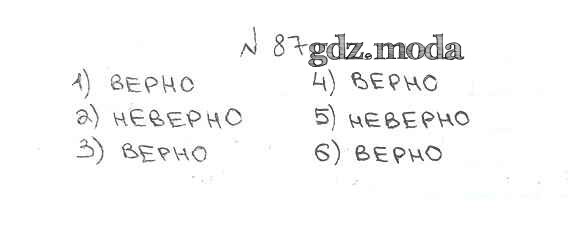 № 87 gdz.moda
1) ВЕРНО
2) НЕВЕРНО
3) ВЕРНО
4) ВЕРНО
5) НЕВЕРНО
6) ВЕРНО